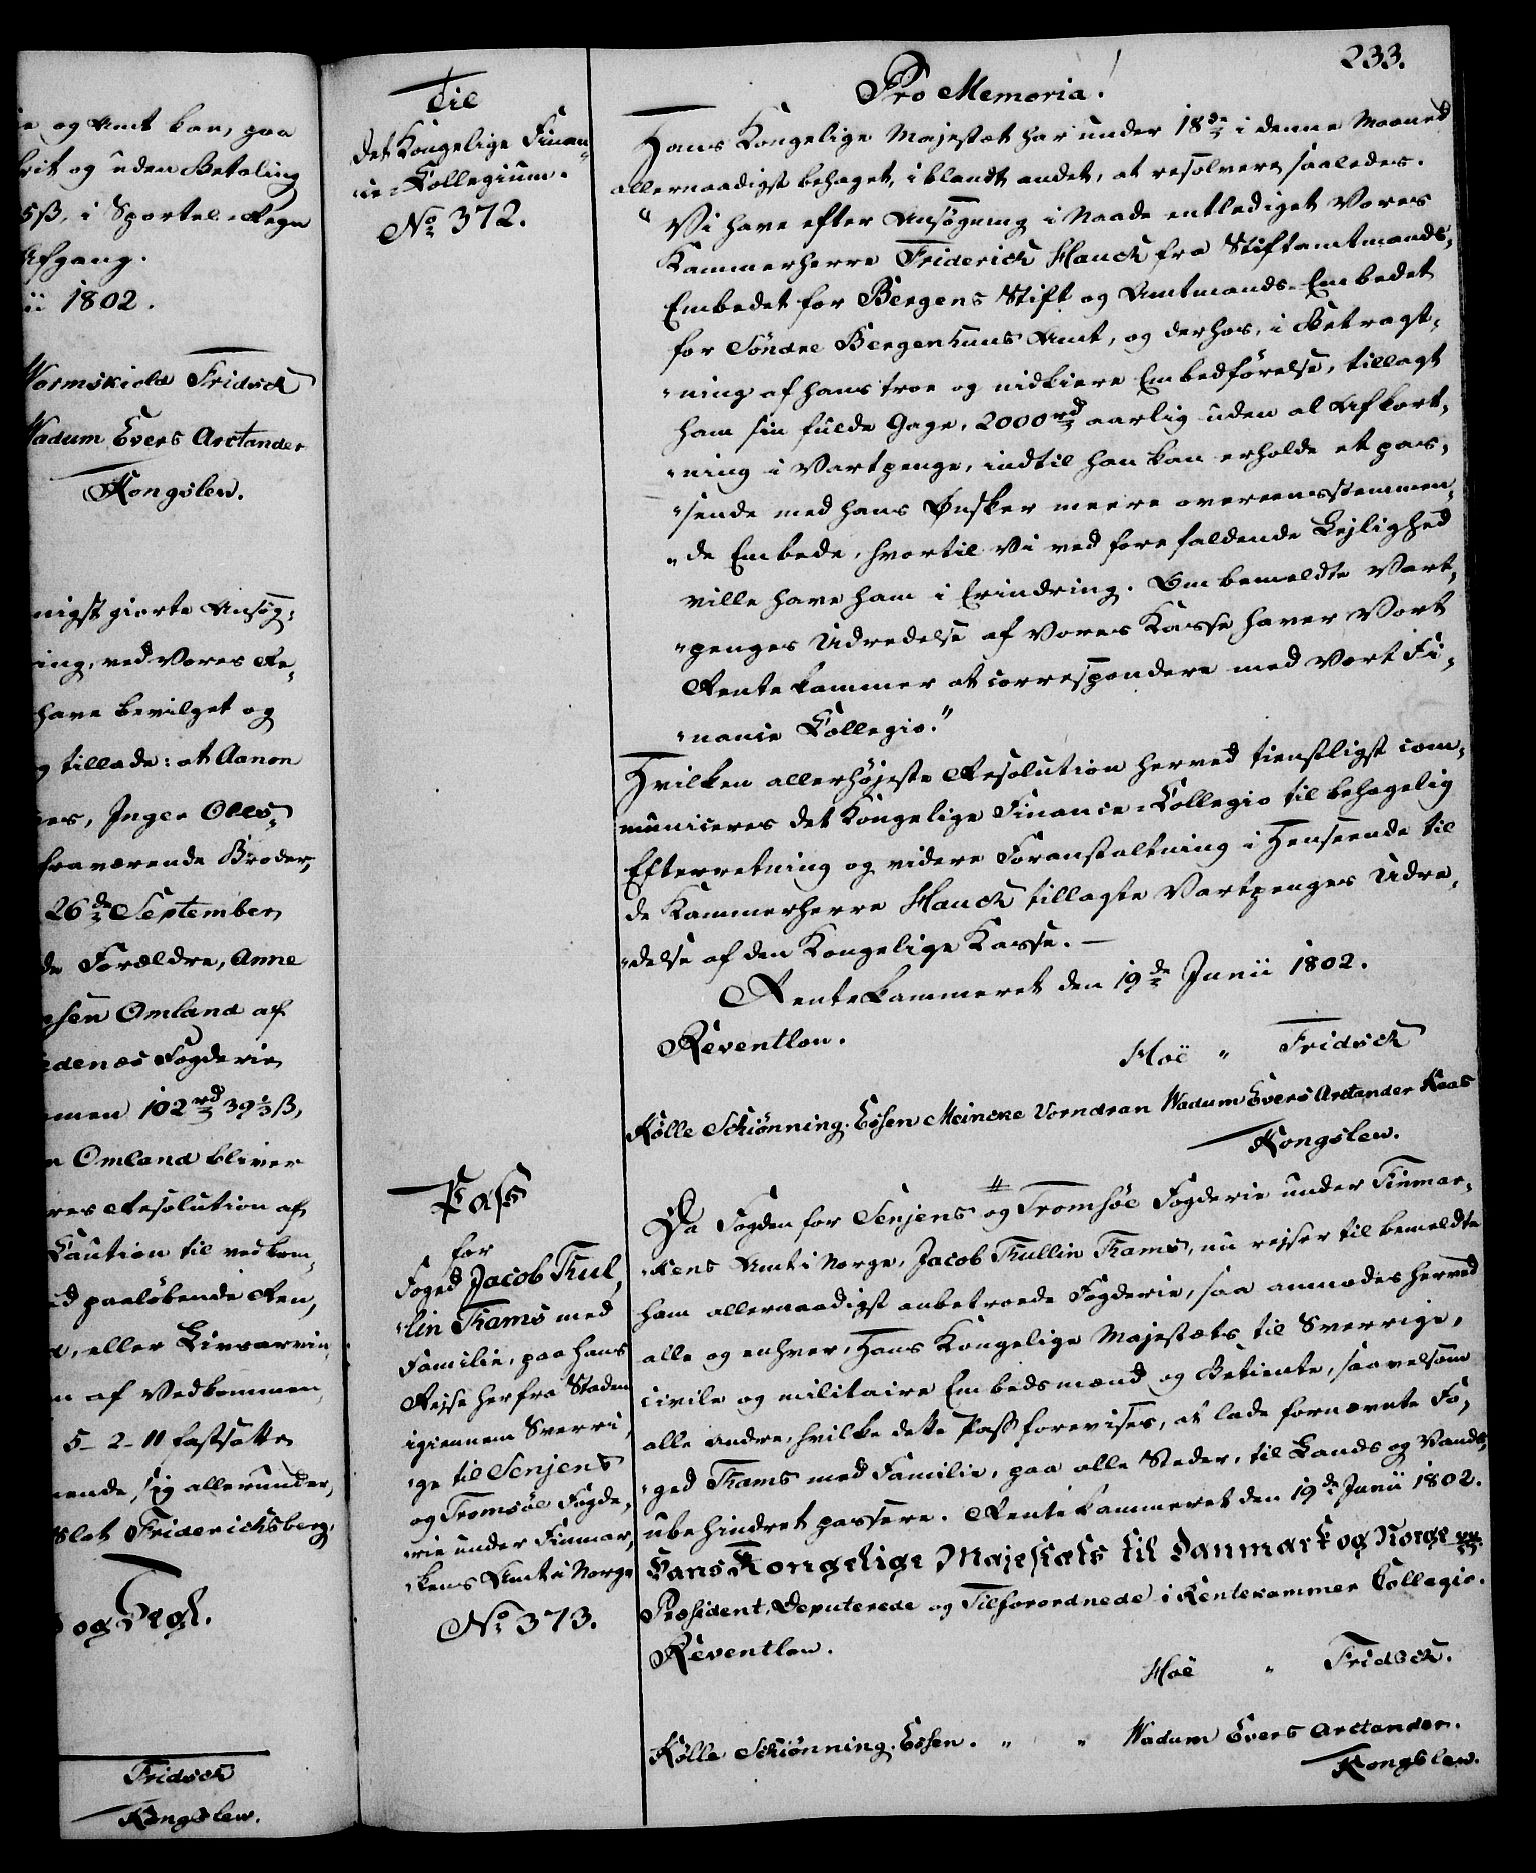 e og Amt kan, paa
krit og uden Betaling
5 ß, i Sportel-Regn
Afgang.
ii 1802.
Wormskiold Fridsch
Wadum Evers Arctander
Kongslew.
nigst giorte Ansøg¬
ing, ved Vores Re¬
have bevilget og
g tillade: at Aanon
es, Inger Oles¬
fraværende Broder,
26de September
de Forældre, Anne
sen Omland af
edenæs Fogderie
men 102 rd 39½ ß,
n Omland bliver
res Resolution af
Caution til vedkom¬
ed paaløbende Ren¬
, eller Livsarvin¬
n af Vedkommen¬
5-2-11 fastsatte
ende sig allerunder¬
Slot Friderichsberg,
og Segl.
Fridsch
Kongslew.
Til
det Kongelige Finan¬
ce-Collegium.
No 372.
233.
Pro Memoria!
Hans Kongelige Majestæt har under 18de i denne Maaned
allernaadigst behaget, iblandt andet, at resolvere saaledes.
"Vi have efter Ansøgning i Naade entlediget Vores
Kammerherre Friderich Hauch fra Stiftamtmands-
Embedet for Bergens Stift og Amtmands-Embedet
for Søndre Bergenhuus Amt, og derhos, i Betragt¬
"ning af hans troe og nidkiere Embedførelse, tillagt
ham sin fulde Gage, 2000 rd aarlig uden al Afkort¬
"ning i Vartpenge, indtil han kan erholde et pas¬
"sende med hans Ønsker meere overeensstemmen¬
"de Embede, hvortil Vi ved forefaldende Lejlighed
ville have ham i Erindring. Om bemeldte Vart¬
"penges Udredelse af Vores Kasse haver Vort
Rentekammer at correspondere med Vort Fi¬
"nance Collegio."
Hvilken allerhøjeste Resolution herved tienstligst com¬
municeres det Kongelige Finance-Collegio til behagelig
Efterretning og videre Foranstaltning i Henseende til
de Kammerherre Hauch tillagte Vartpenges Udre¬
"delse af den Kongelige Kasse. —
Rentekammeret den 19de Junii 1802.
Reventlow.
Hoë " Fridsch
Kølle Schiønning. Essen Meincke Vorndran Wadum Evers Arctander Kaas
Kongslew.
Pass
for
Foged Jacob Thul¬
"lin Thams med
Familie, paa hans
Rejse herfra Staden
igiennem Sverri¬
"ge til Senjens
og Tromsöe Fogde¬
"rie under Finmar¬
"kens Amt i Norge
No 373.
#
Da Fogden for Senjens og Tromsöe Fogderie under Finmar¬
"kens Amt i Norge, Jacob Thullin Thams, nu rejser til bemeldte
ham allernaadigst anbetroede Fogderie, saa anmodes herved
alle og enhver, Hans Kongelige Majestæts til Sverrige,
civile og militaire Embedsmænd og Betiente, saavelsom
alle andre, hvilke dette Pass forevises, at lade fornævnte Fo¬
"ged Thams med Familie, paa alle Steder, til Lands og Vands,
ubehindret passere. Rentekammeret den 19de Junii 1802.
Hans Kongelige Majestæts til Danmark og Norge
Præsident, Deputerede og Tilforordnede i Rentekammer Collegio.
Reventlow.
Hoë " Fridsch.
Kølle Schiønning. Essen. " " Wadum Evers Arctander.
Kongslew.